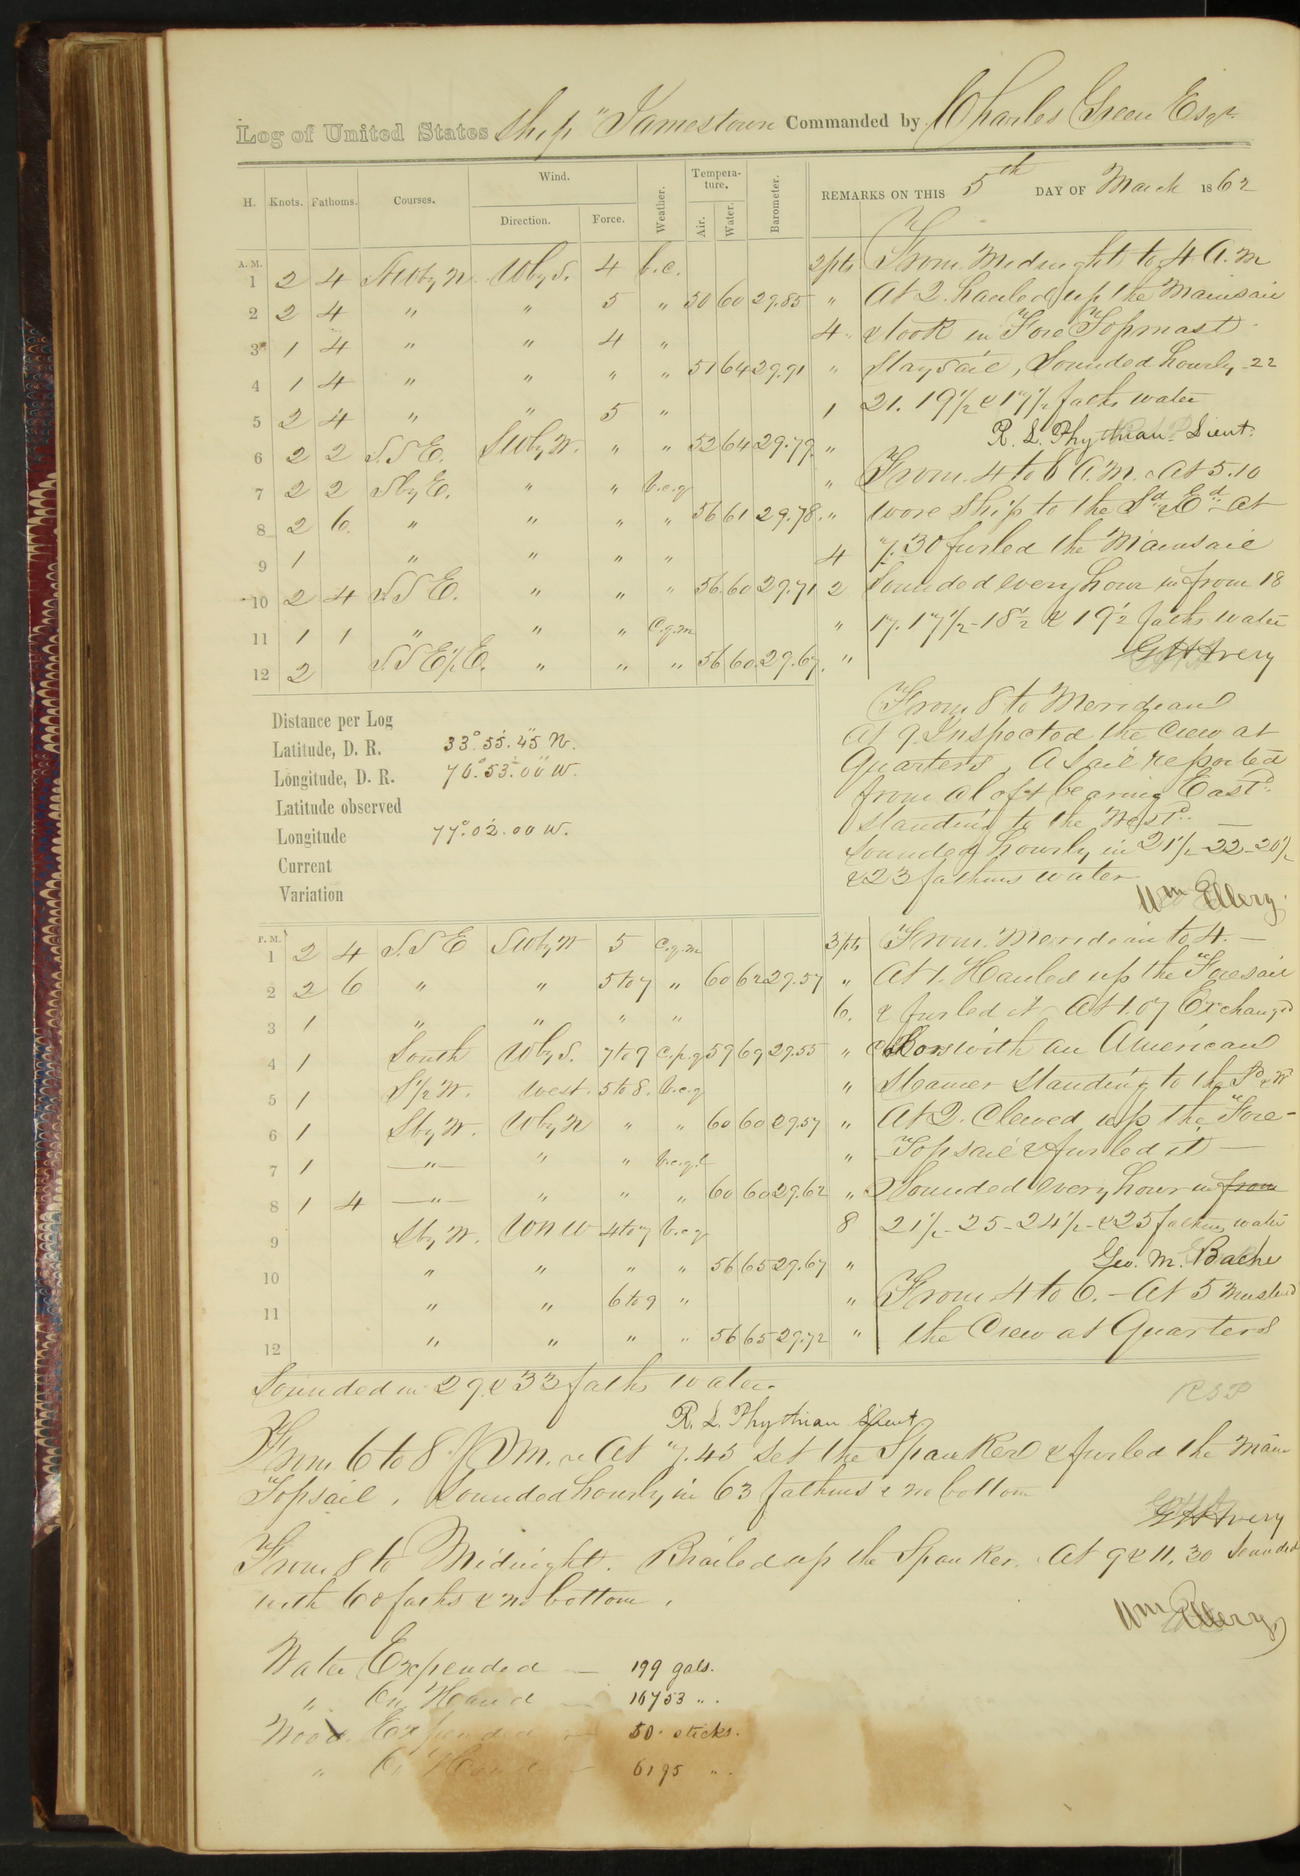 Log of United States Ship "Jamestown Commanded by Charles Green Esqr
H. Knots. Fathoms. Courses. Wind. Direction. Force. Weather. Tempera-ture. Air. Water. Barometer. REMARKS ON THIS 5th DAY OF March 1862
A. M.
1 2 4 NWby W. Wby S. 4 b.c. 2pts From Midnight to 4 A.M
2 2 4 " " 5 " 50 60 29.85 " At 2. hauled up the Mainsail
3 1 4 " " 4 " 4 " & took in Fore Topmast
4 1 4 " " " " 51 64 29.91 " Staysail, Sounded hourly, 22
5 2 4 " " 5 " 1 21. 19 1/2 & 17 1/2 faths water
R. L. Phythian Lieut.
6 2 2 S.S.E. SWby W. " " 52 64 29.79. "
7 2 2 Sby E. " " b.c.q " From 4 to 8 A.M. At 5.10
8 2 6. " " " " 56 61 29.78. " wore Ship to the Sd & Ed At
9 1 " " " " 4 7.30 furled the Mainsail
10 2 4 S.S E. " " " 56 60 29.71 2 Sounded every hour in from 18
11 1 1 " " " c.q.m " 17. 17 1/2 - 18 1/2 & 19 1/2 faths water
12 2 S.S E 1/2 E. " " " 56 60 29.67. " G H Avery
Distance per Log
Latitude, D. R. 33° 55' 45" N.
Longitude, D. R. 76° 53' 00" W.
Latitude observed
Longitude 77° 02' 00 W.
Current
Variation
From 8 to Meridian
At 9. Inspected the crew at
Quarters. A Sail reported
from aloft bearing Eastd.
standing to the Westd.
Sounded hourly in 21 1/2 - 22 - 20 1/2
& 23 fathoms water
Wm Ellery.
P. M.
1 2 4 S.S E SWby W 5 c.q.m 3pts From Meridian to 4. —
2 2 6 " " 5 to 7 " 60 62 29.57 " At 1. Hauled up the Foresail
3 1 " " " " 6. & furled it - At 1.07 Exchangd
4 1 South Wby S. 7 to 9 c.p.q 59 69 29.55 " Colors with an American
5 1 S 1/2 W. West. 5 to 8. b.c.q " Steamer Standing to the Sd & W
6 1 Sby W. Wby N " " 60 60 29.57 " At 2. Clewed up the Fore-
7 1 —"— " " b.c.q.l " Topsail & furled it —
8 1 4 —"— " " " 60 60 29.62 " Sounded every hour in from
9 Sby W. WNW 4 to 7 b.c.q 8 21 1/2 - 25 - 24 1/2 - & 25 fathms water
10 " " " " 56 65 29.67 " Geo. M. Bache
11 " " 6 to 9 " " From 4 to 6. - At 5 mustered
12 " " " " 56 65 29.72 " the Crew at Quarters
Sounded in 29 & 33 faths water.
R S P
R. L. Phythian Lieut
From 6 to 8 P.M. At 7.45 Set the Spanker & furled the Main
Topsail. Sounded hourly in 63 fathms & no bottom
G H Avery
From 8 to Midnight. Brailed up the Spanker. At 9 & 11.30 Sounded
with 60 faths & no bottom.
Wm Ellery
Water Expended — 199 gals.
" On Hand — 16753 " .
Wood Expended — 50 sticks.
" On Hand — 6195 " .